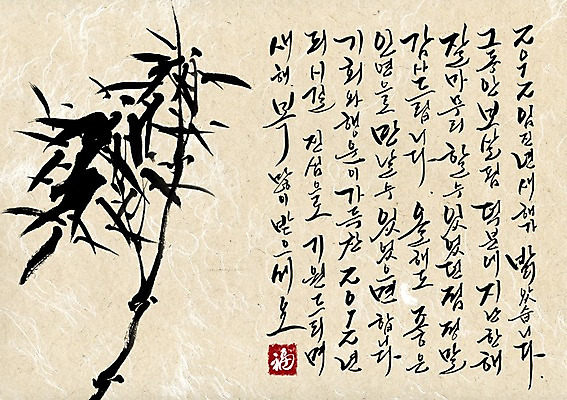 2012 임진년 새해가 밝았습니다.
그동안 보살핌 덕분에 지난 한해
잘 마무리 할 수 있었던 점 정말
감사드립니다. 올해도 좋은
인연을 만날 수 있었으면 합니다
기회와 행운이 가득찬 2012년
되시길 진심으로 기원드리며
새해 복 많이 받으세요
福